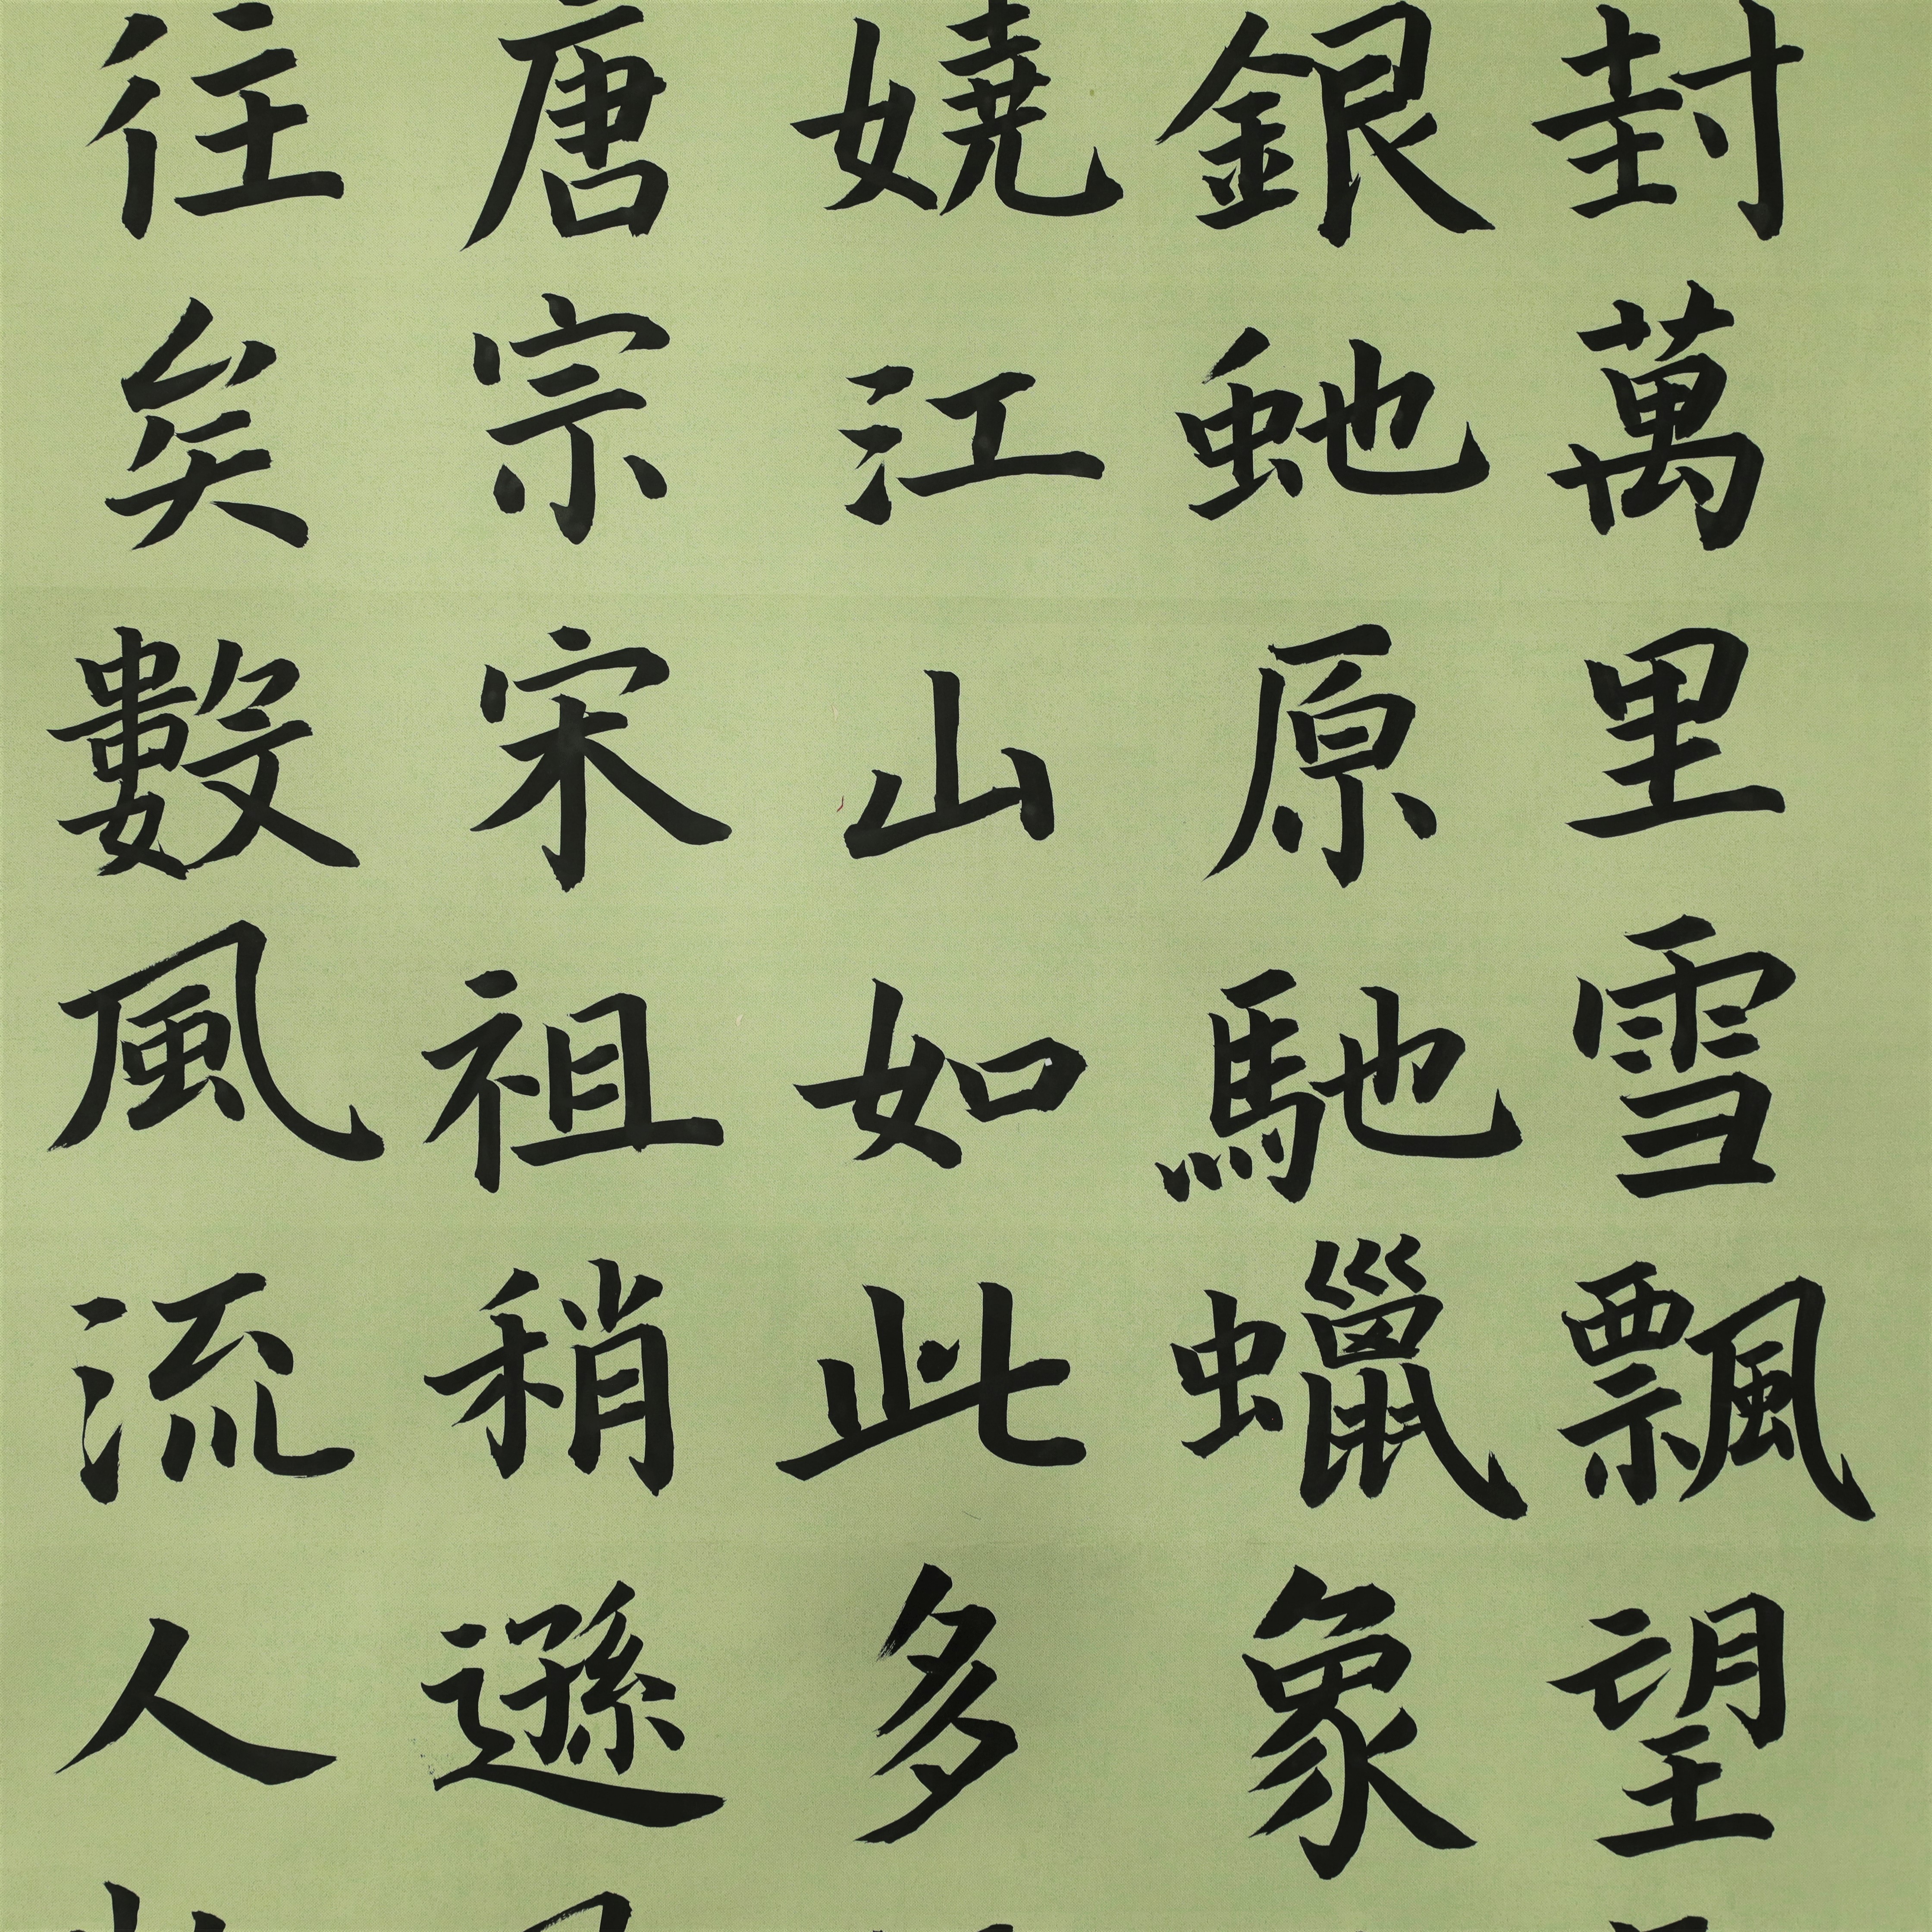 封萬里雪飄望
銀虵原馳蠟象
嬈江山如此多
唐宗宋祖稍遜
往矣數風流人